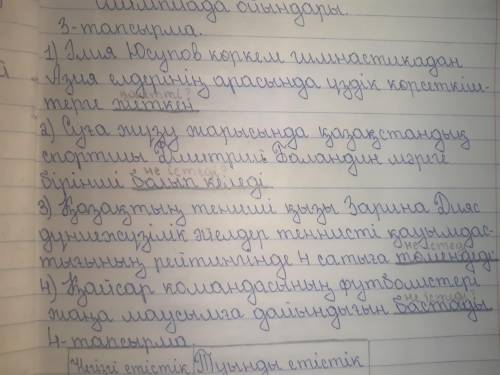 ойындары.
3-тапсырма.
1) Элия Юсупов көркем гимнастикадан
Азия елдерінің арасында үздік көрсеткіш-
терге жеткен.
2) Суға жүзу жарысында қазақстандық
спортшы Дмитрий Баландин мәреге
не істеді?
бірінші болып келеді.
3) Қазақтың теннисші қызы Зарина Дияс
дүниежүзілік әйелдер теннисті қауымдас-
не істеді
тығының рейтингінде 4 сатыға төмендеді
4) Қайсар командасының футболистері
не істеді
жаңа маусымға дайындығын бастады.
4-тапсырма
Негізгі етістік Туынды етістік